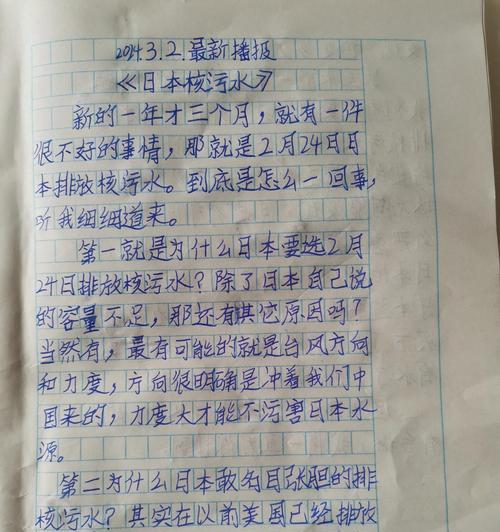 2024.3.2.最新播报
《日本核污水》
新的一年才三个月，就有一件
很不好的事情，那就是2月24日日
本排放核污水。到底是怎么一回事，
听我细细道来。
第一就是为什么日本要选2月
24日排放核污水？除了日本自己说
的容量不足，那还有其它原因吗？
当然有，最有可能的就是台风方向
和力度，方向很明确是冲着我们中
国来的，力度大才能不污害日本水
源。
第二为什么日本敢名目张胆的排
核污水？其实在以前美国已经排放